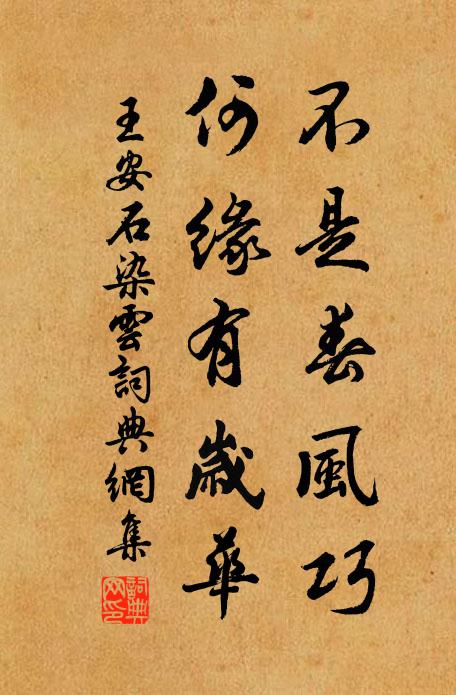 不是春風巧
何緣有歲華
王安石染雲詞典網集
詞典網印